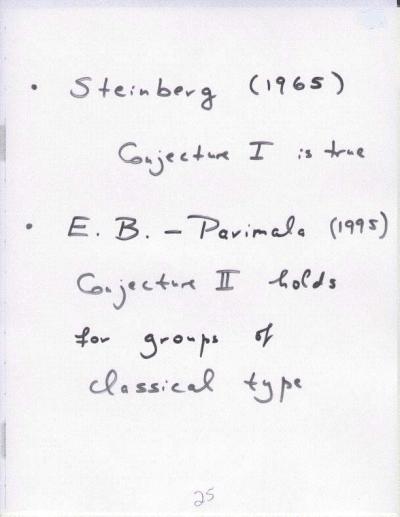 • Steinberg (1965)
Conjecture I is true
• E. B. – Parimala (1995)
Conjecture II holds
for groups of
classical type
25